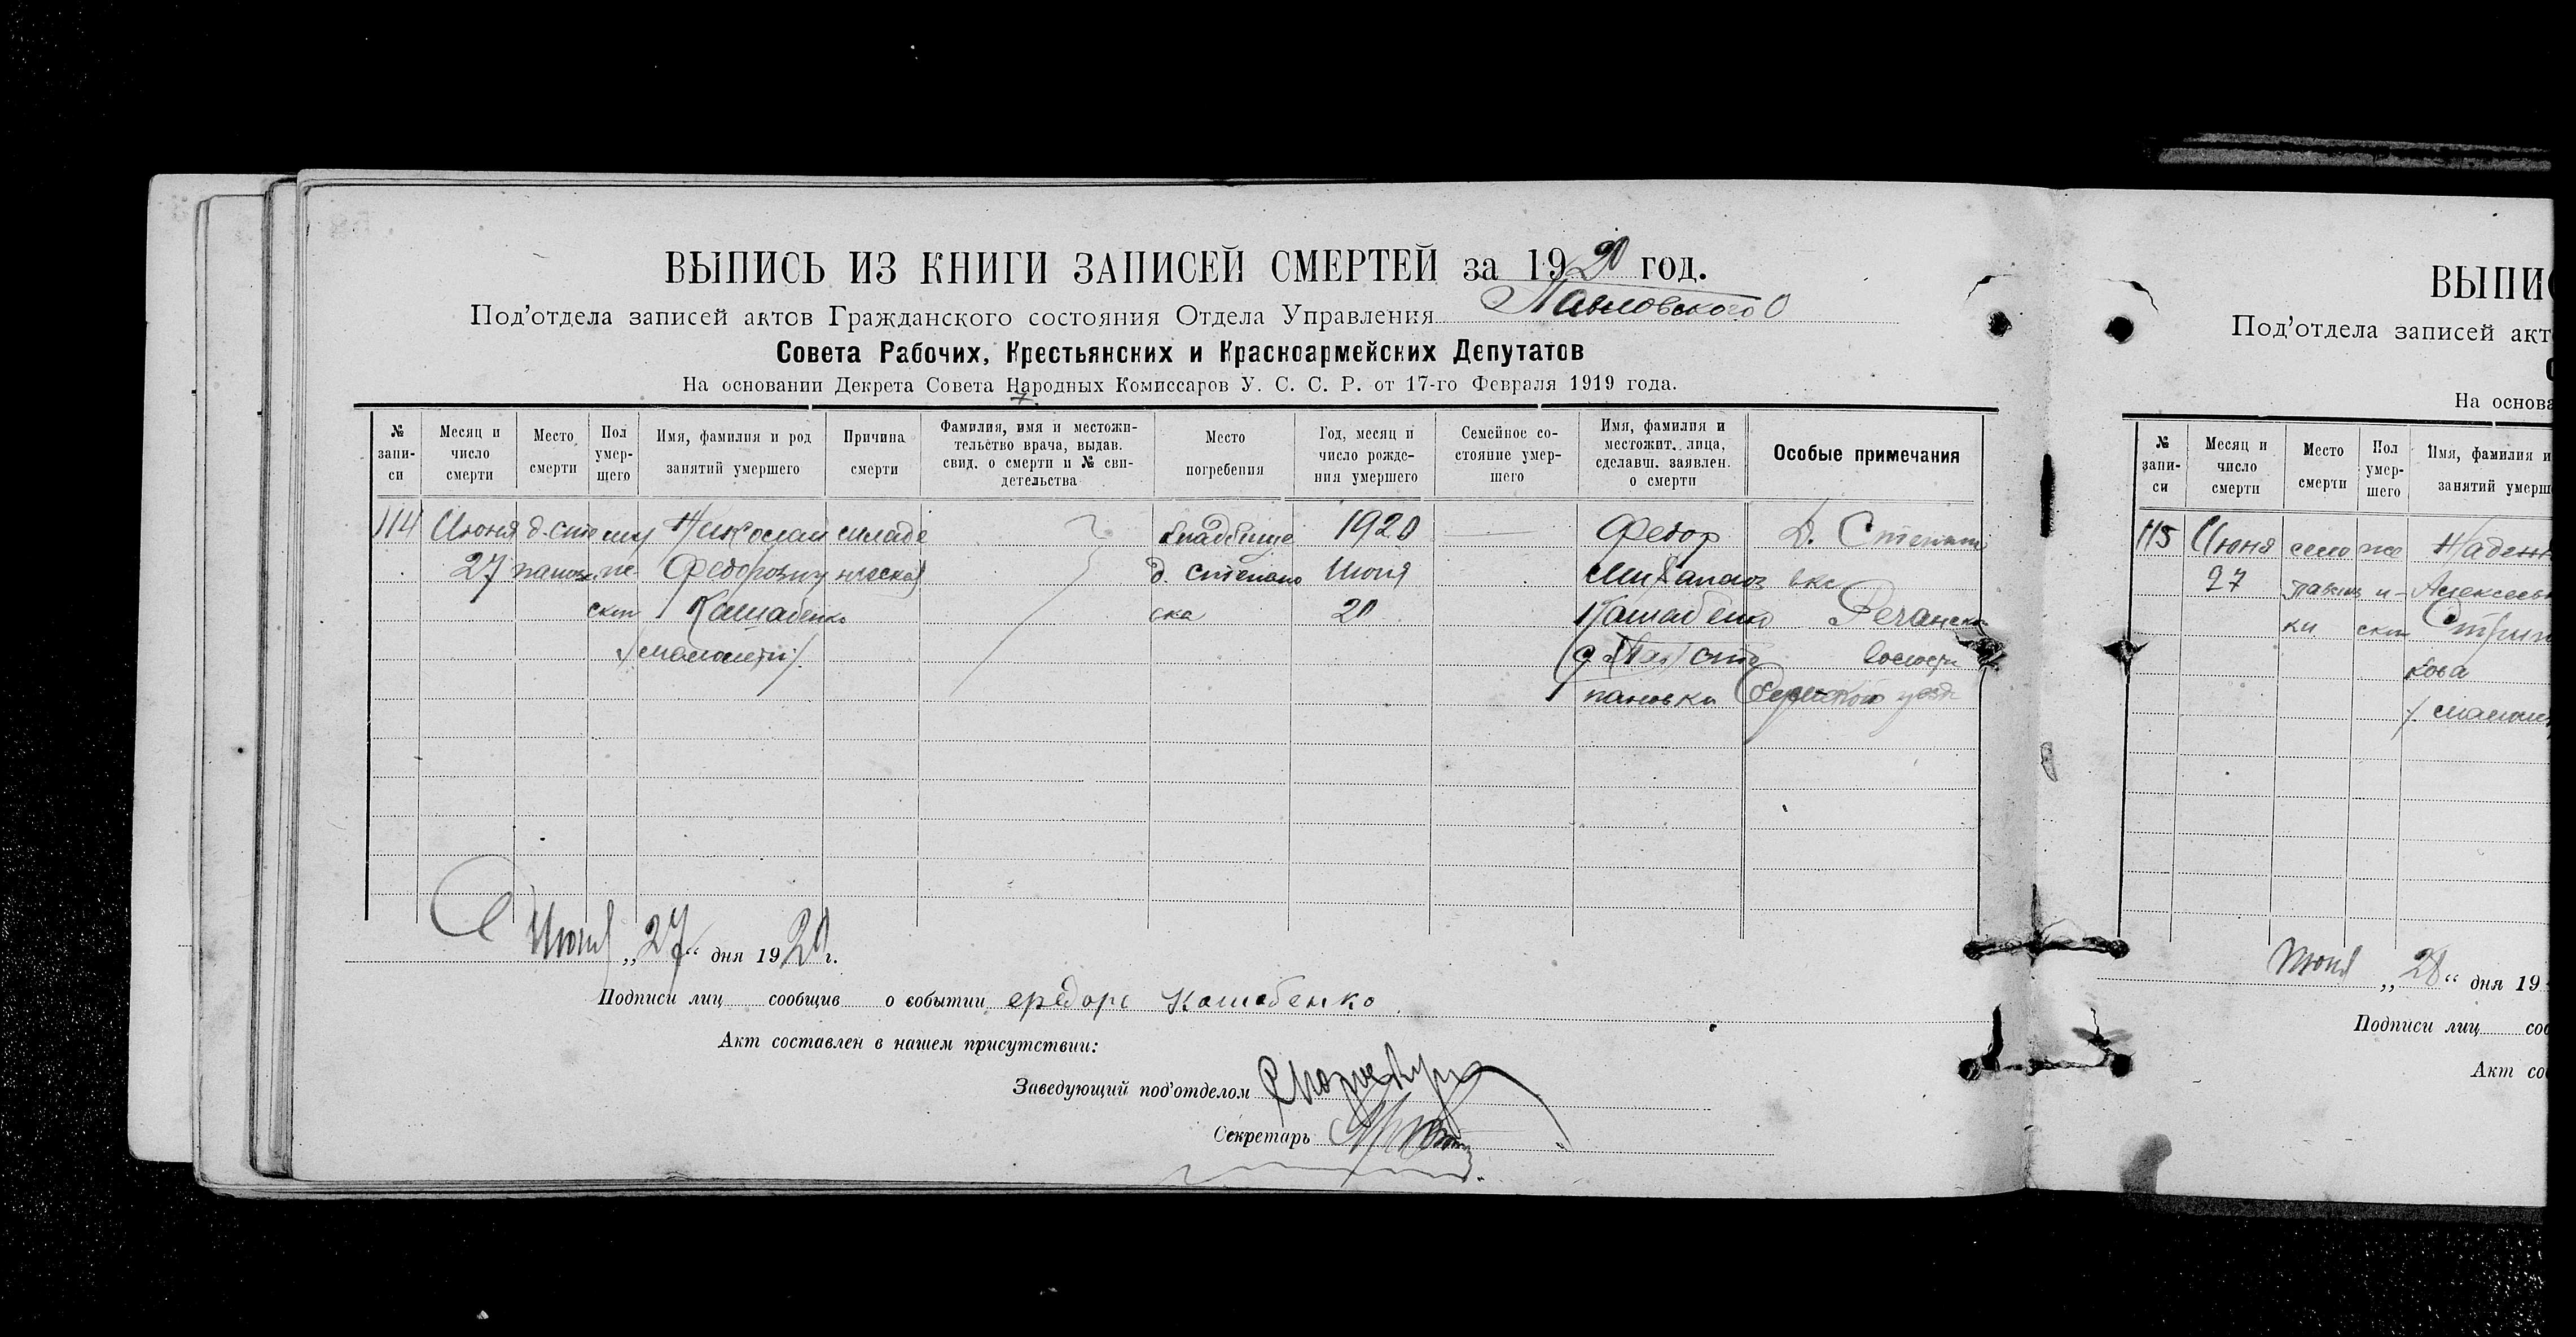 ВЫПИСЬ ИЗ КНИГИ ЗАПИСЕЙ СМЕРТЕЙ за 1920 год.
Под'отдела записей актов Гражданского состояния Отдела Управления Павловского
Совета Рабочих, Крестьянских и Красноармейских Депутатов
На основании Декрета Совета Народных Комиссаров У. С. С. Р. от 17-го Февраля 1919 года.
№ запи- си
Месяц и число смерти
Место смерти
Пол умер- щего
Имя, фамилия и род занятий умершего
Причина смерти
Фамилия, имя и местожи- тельство врача, выдав. свид. о смерти и № сви- детельства
Место погребения
Год, месяц и число рожде- ния умершего
Семейное со- стояние умер- шего
Имя, фамилия и местожит. лица, сделавш. заявлен. о смерти
Особые примечания
114 Июня д. сте муж Николай младе кладбище 1920 Федор д. Степан
27 пановк Федорович ческая д. Степано Июня Михайлов
ский Кашабенко вка 20 Кашабенко Речанск
/малолетн/ д. Сте волости
пановки уезд
Июня „27“ дня 1920 г.
Подписи лиц сообщив о событии федорь Кашабенко
Акт составлен в нашем присутствии:
Заведующий под'отделом
Секретарь
ВЫПИС
Под'отдела записей акт
На основа
№ запи- си
Месяц и число смерти
Место смерти
Пол умер- шего
Имя, фамилия и
занятий умерш
115 Июня село же Надеж
27 Павлов н- Алексеев
ки ский
кова
„28“ дня 19
Подписи лиц соо
Акт со